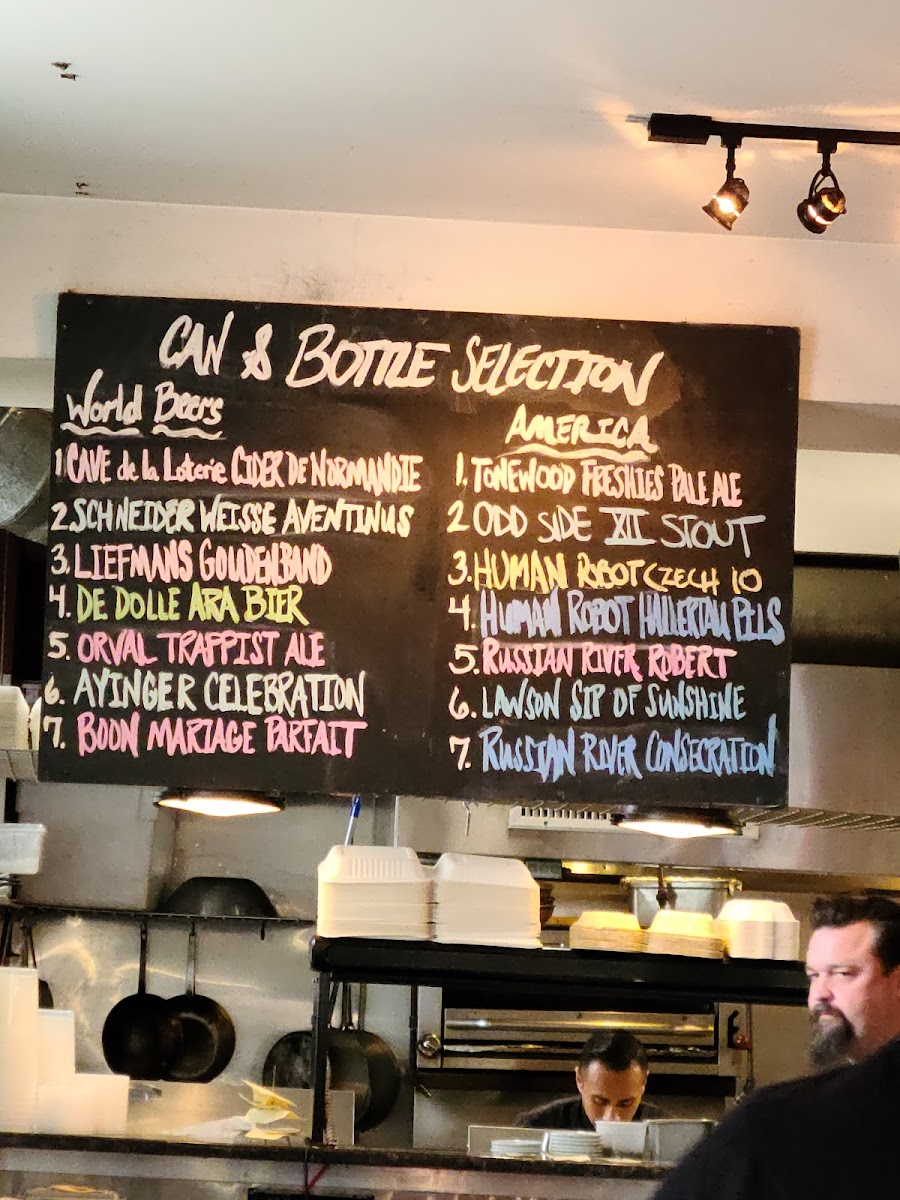 CAN & BOTTLE SELECTION
World Beers
1 CAVE de la Loterie CIDER DE NORMANDIE
2. SCHNEIDER WEISSE AVENTINUS
3. LIEFMANS GOUDENBAND
4. DE DOLLE ARA BIER
5. ORVAL TRAPPIST ALE
6. AYINGER CELEBRATION
7. BOON MARIAGE PARFAIT
AMERICA
1. TONEWOOD FRESHIES PALE ALE
2 ODD SIDE XII STOUT
3. HUMAN ROBOT CZECH 10
4. HUMAN ROBOT HALLERTAU PILS
5. RUSSIAN RIVER ROBERT
6. LAWSON SIP OF SUNSHINE
7. RUSSIAN RIVER CONSECRATION